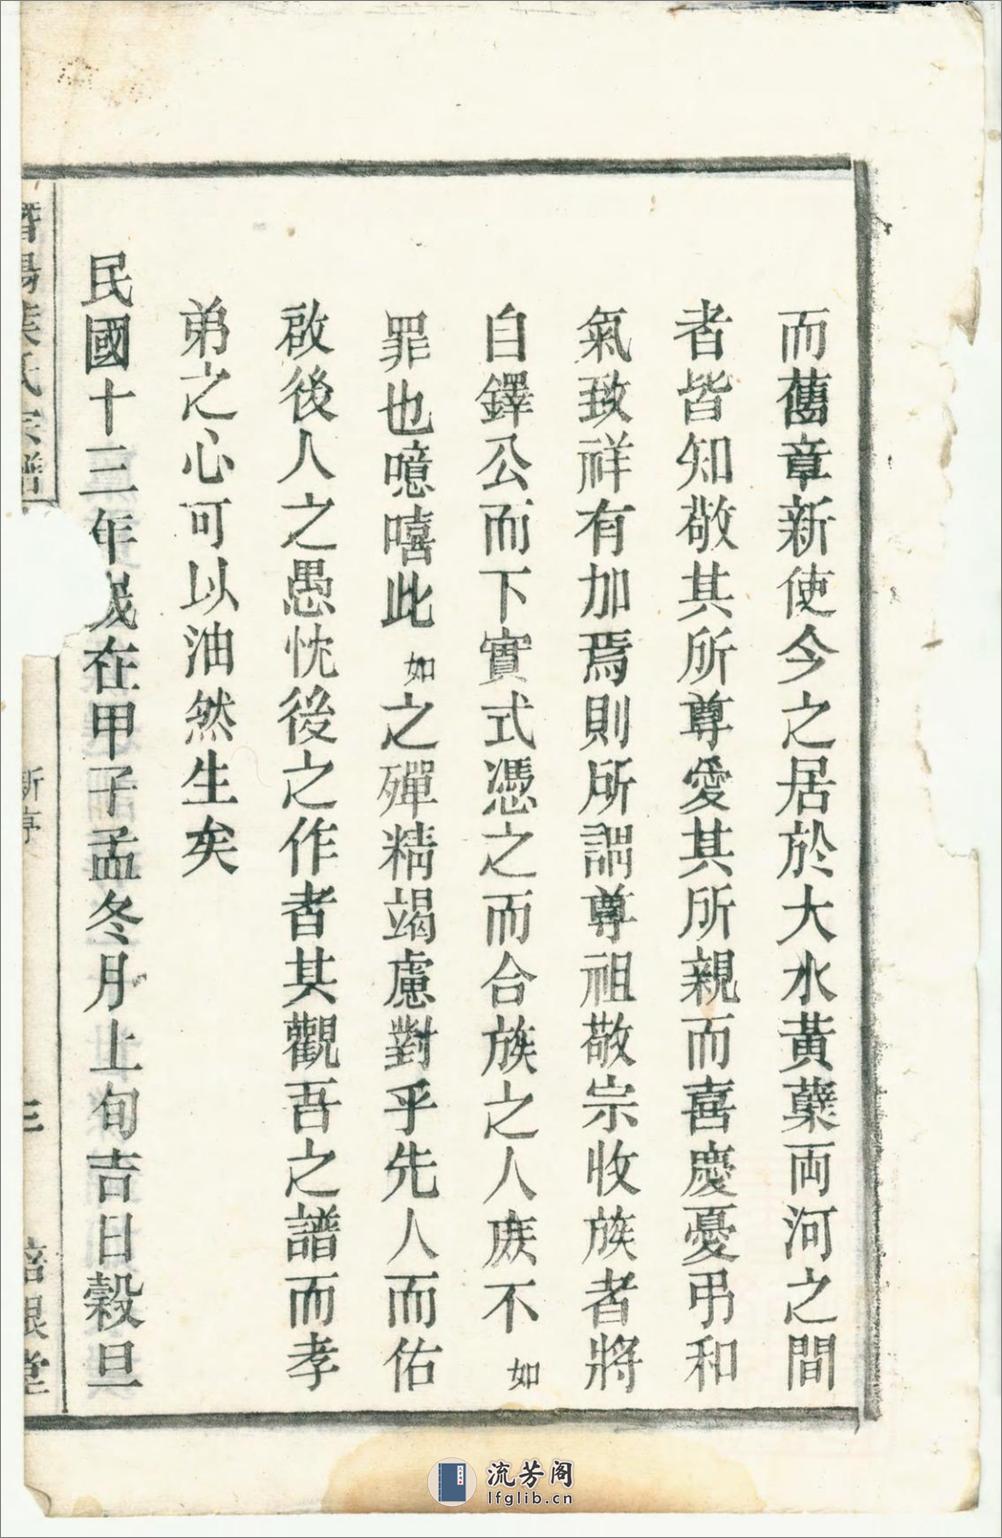 而舊章新使今之居於大水黃蘗両河之間
者皆知敬其所尊愛其所親而喜慶憂弔和
氣致祥有加焉則所謂尊祖敬宗收族者將
自鐸公而下實式憑之而合族之人庻不如
罪也噫嘻此如之殫精竭慮對乎先人而佑
啟後人之愚忱後之作者其觀吾之譜而孝
弟之心可以油然生矣
民國十三年歲在甲子孟冬月上旬吉日穀旦
葉氏宗譜
新序
三
培根堂
流芳阁
lfglib.cn